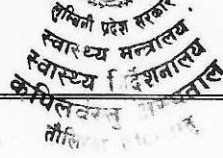 लुम्बिनी प्रदेश सरकार
स्वास्थ्य मन्त्रालय
स्वास्थ्य निर्देशनालय
कपिलवस्तु अस्पताल